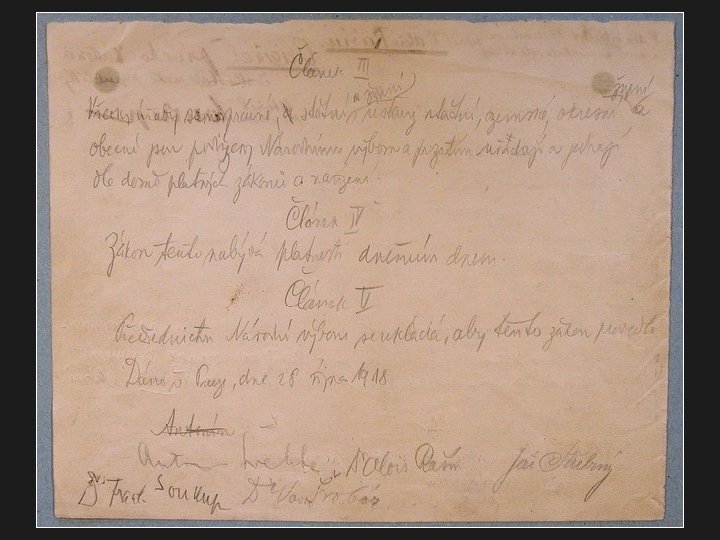 Článek III
Všecky úřady samosprávné, státní a župní ústavy státní, zemské, okresní a župní
obecní jsou podřízeny Národnímu výboru a prozatím úřadují a jednají
dle dosud platných zákonů a nařízení.
Článek IV
Zákon tento nabývá platnosti dnešním dnem.
Článek V
Předsednictvu Národní výboru se ukládá, aby tento zákon provedlo
Dáno v Praze, dne 28 října 1918
Antonín
Antonín Švehla Dr Alois Rašín Jiří Stříbrný
Dr Frant. Soukup Dr Vavro Šrobár